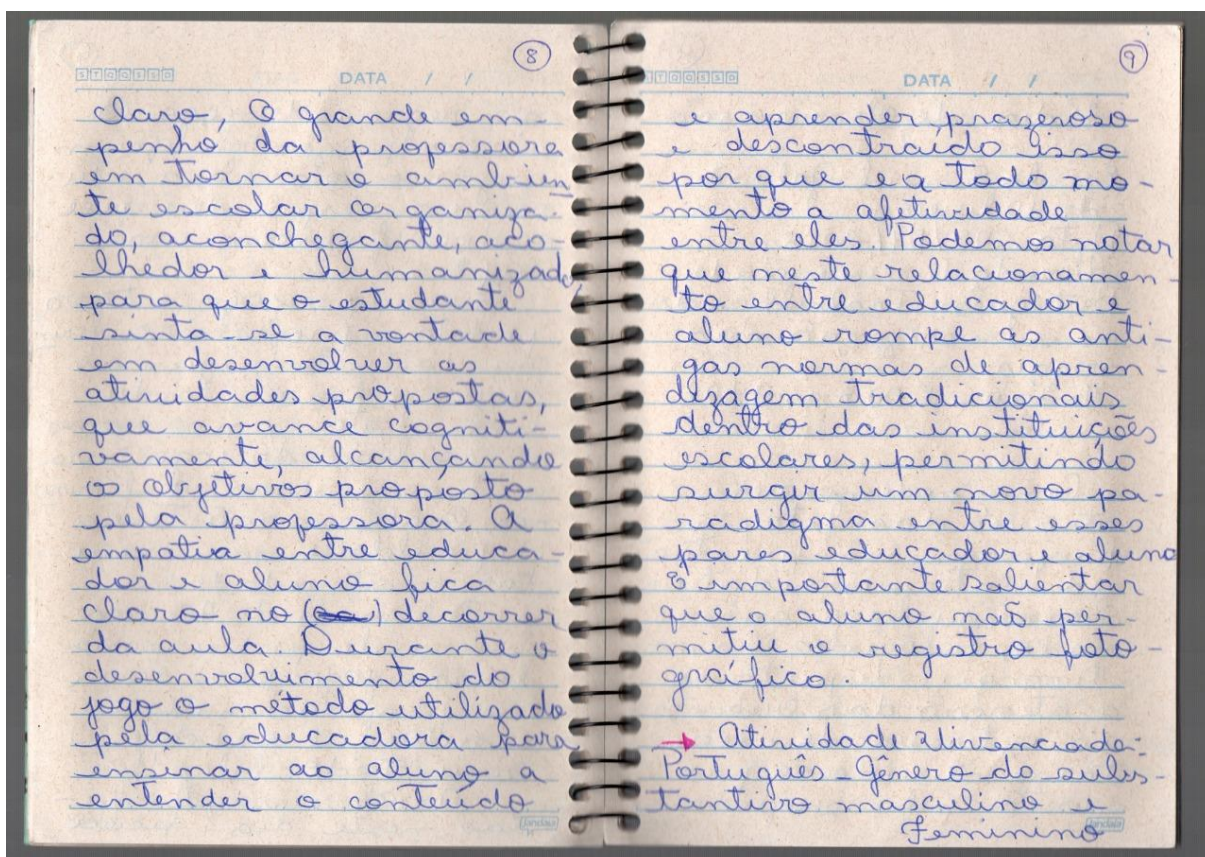 8
STQQSSD
DATA / /
claro, O grande em-
penho da professora
em tornar o ambien
te escolar organiza-
do, aconchegante, aco-
lhedor e humanizado
para que o estudante
sinta-se a vontade
em desenvolver as
atividades propostas,
que avance cogniti-
vamente, alcançando
os objetivos proposto
pela professora. A
empatia entre educa-
dor e aluno fica
claro no decorrer
da aula. Durante o
desenvolvimento do
jogo o método utilizado
pela educadora para
ensinar ao aluno a
entender o conteúdo
jandaia
9
STQQSSD
DATA / /
e aprender, prazeroso
e descontraído isso
por que e a todo mo-
mento a afetividade
entre eles. Podemos notar
que neste relacionamen-
to entre educador e
aluno rompe as anti-
gas normas de apren-
dizagem tradicionais
dentro das instituições
escolares, permitindo
surgir um novo pa-
radigma entre esses
pares educador e aluno
é importante salientar
que o aluno não per-
mitiu o registro foto-
gráfico.
→ Atividade vivenciada:
Português - Gênero do subs-
tantivo masculino e
Feminino
jandaia